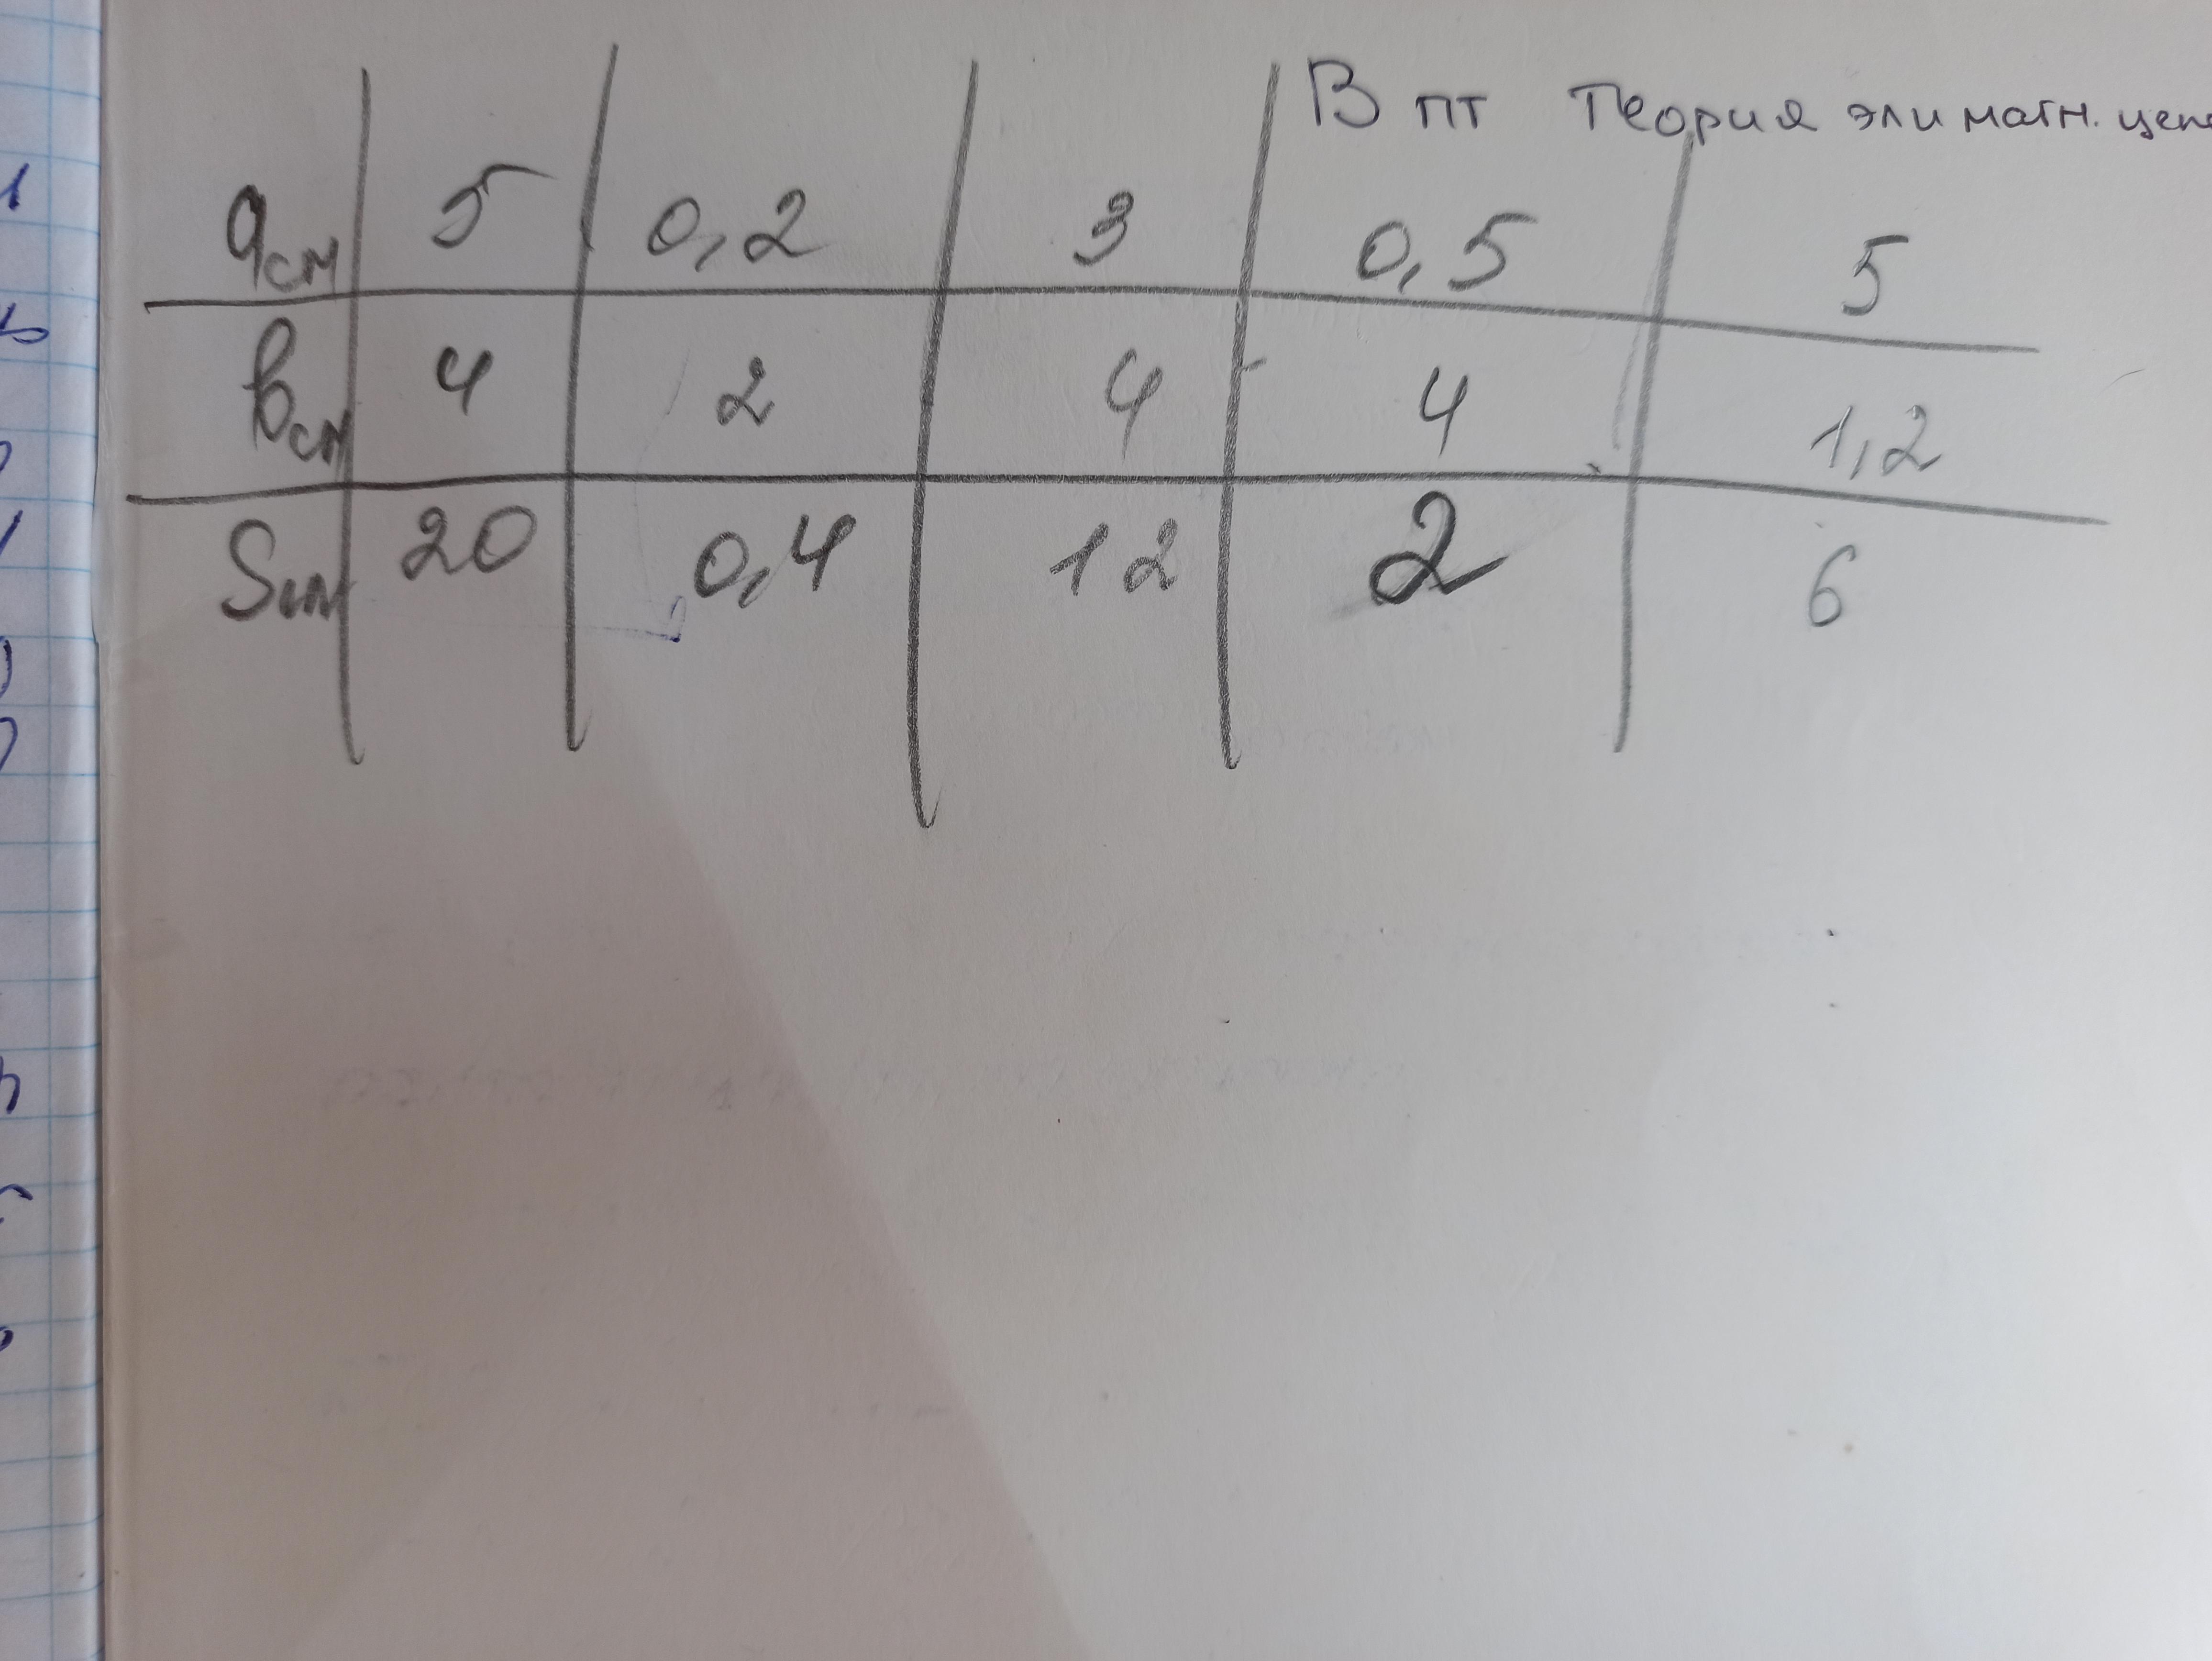 В пт Теория эл и магн. цепе
a см 5 0,2 3 0,5 5
в см 4 2 4 4 1,2
S см 20 0,4 12 2 6